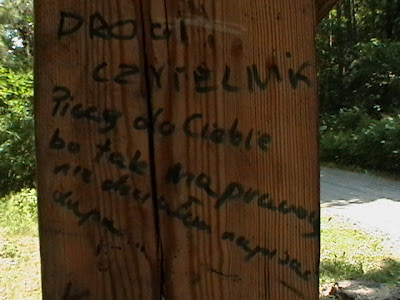 DROGI,
CZYTELNIK
Piszę do Ciebie
bo tak naprawdę
nie chciałem napisać
dupa...